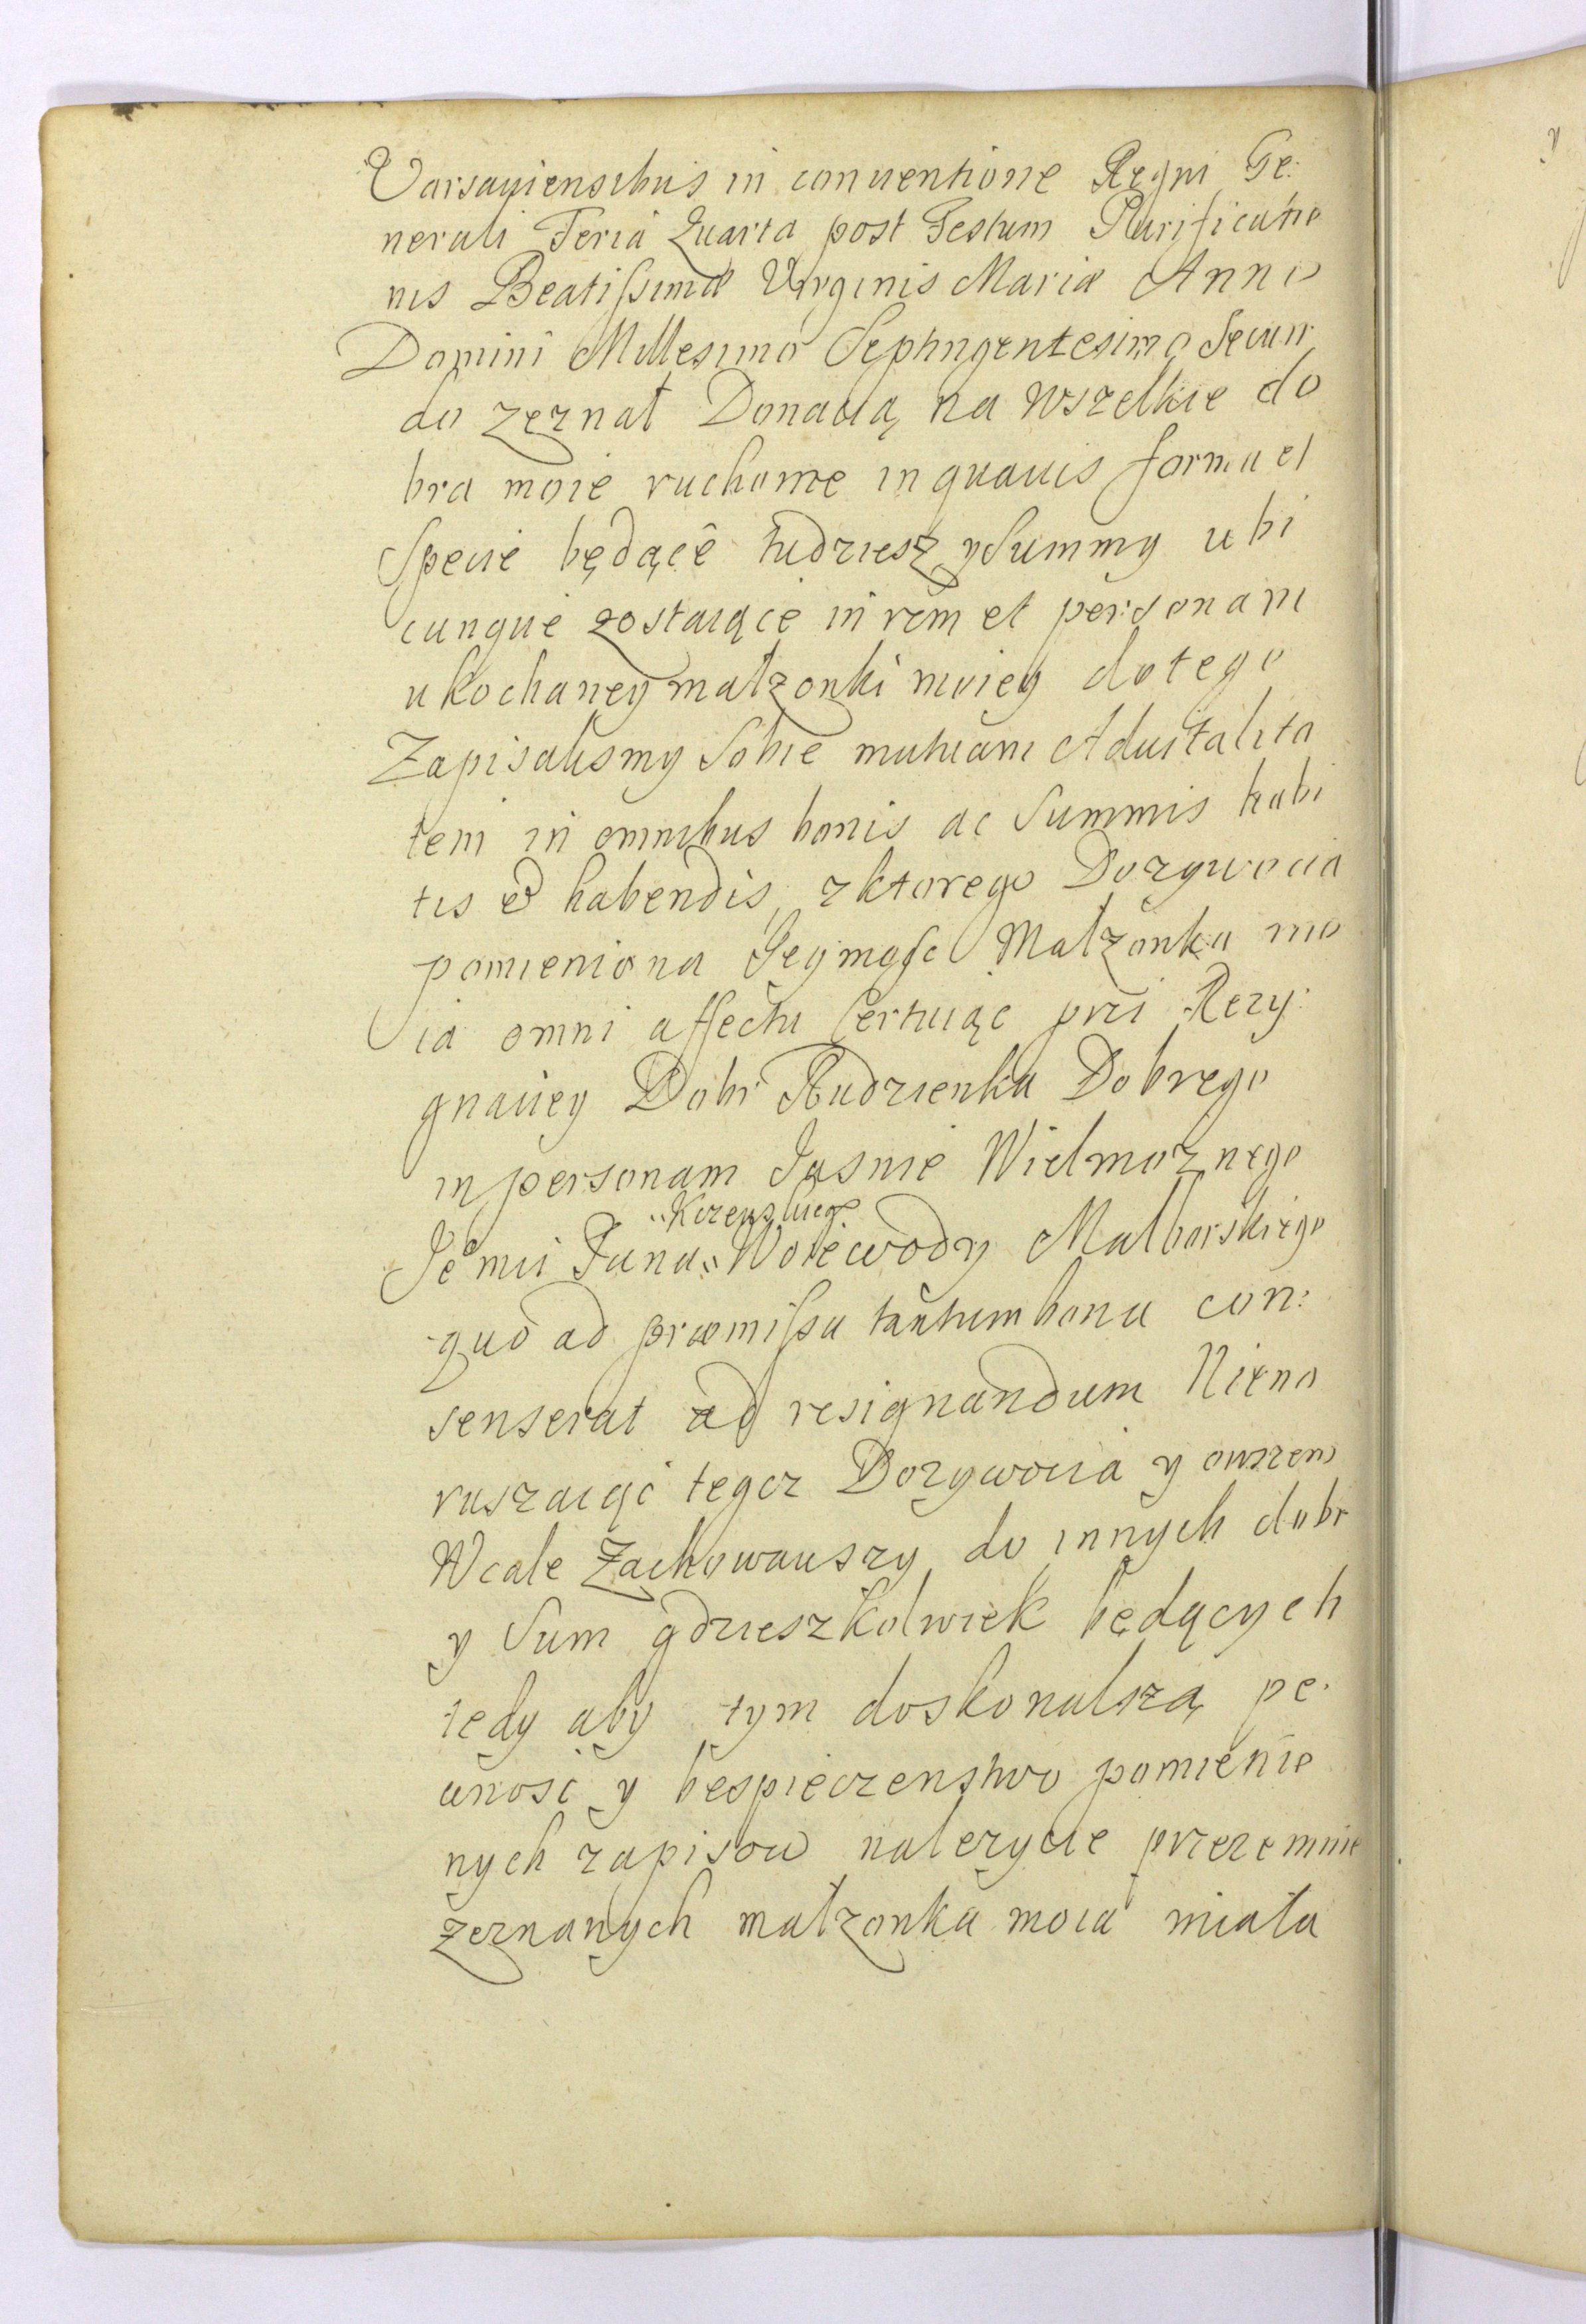 Varsauiensibus in conuentione Regni Ge:
nerali Feria Quarta post Festum Purificatio
nis Beatissimæ Virginis Mariæ Anno
Domini Millesimo Septingentesimo Secun
do zeznał Donacią na wszelkie do
bra moie ruchome in quauis forma et
Specie będące tudziesz y Summy ubi
cunque zostaiące in rem et personam
ukochaney małzonki moiey do tego
Zapisalismy Sobie mutuam Aduitalita
tem in omnibus bonis ac Summis habi
tis et habendis, z ktorego Dozywocia
pomieniona Jeymosc Małzonka mo
ia omni affectu Certuiąc przi Rezy:
gnaciey Dobr Rudzienka Dobrego
in personam Jasnie Wielmoznego
Je mci Pana Woiewody Malborskiego
quo ad præmissa tantum bona con:
senserat ad resignandum Niena
ruszaiąc tegoz Dozywocia y owszem
Wcale Zachowawszy do innych dobr
y Sum gdzieszkolwiek będących
tedy aby tym doskonalszą pe:
wnosc y bespieczenstwo pomienio
nych zapisow nalezycie przezemnie
zeznanych małzonka moia miała